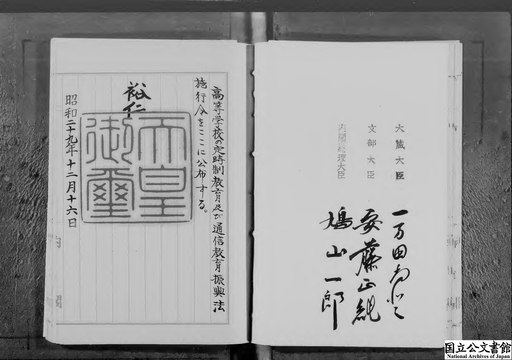 高等学校の定時制教育及び通信教育振興法
施行令をここに公布する。
裕仁
天皇
御璽
昭和二十九年十二月十六日
大蔵大臣
文部大臣
内閣総理大臣
一万田尚登
安藤正純
鳩山一郎
国立公文書館
National Archives of Japan